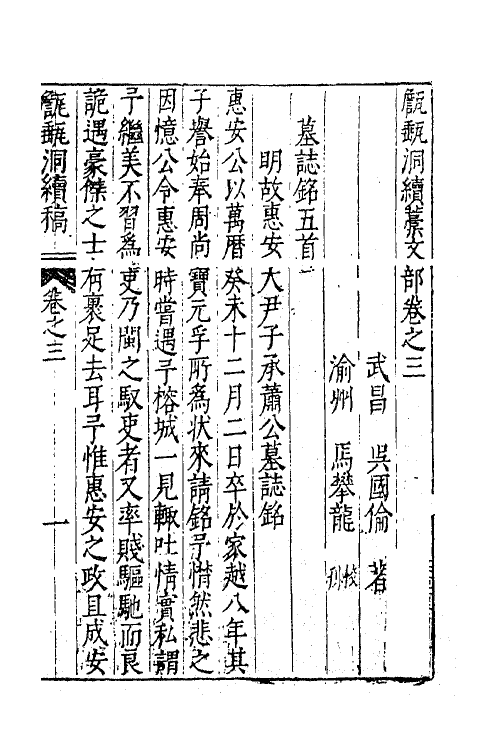 甔甀洞續藁文部卷之三
武昌 吳國倫 著
渝州 馬攀龍 校 刊
墓誌銘五首
明故惠安大尹子承蕭公墓誌銘
惠安公以萬曆癸未十二月二日卒於家越八年其
子譽始奉周尚寶元孚所爲狀來請銘予愴然悲之
因憶公令惠安時嘗遇予榕城一見輙吐情實私謂
予繼美不習爲吏乃閩之馭吏者又率賤驅馳而良
詭遇豪傑之士有裹足去耳予惟惠安之政且成安
甔甀洞續稿 卷之三 一